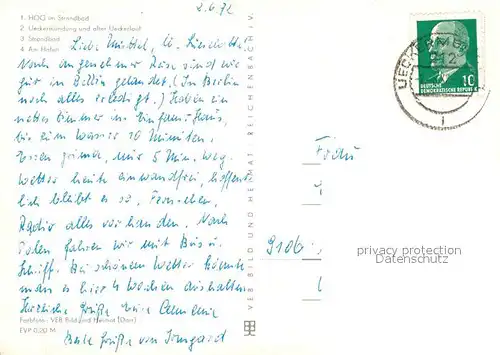 2.6.72
1. HOG im Strandbad
2. Ueckermündung und alter Ueckerlauf
3. Strandbad
4. Am Hafen
Liebe Muttel, u. Lieselotte
Nach angenehmer Reise sind wir
hier in Bellin gelandet. (In Berlin
noch alles erledigt.) Haben ein
nettes Zimmer in Einfam.-Haus,
bis zum Wasser 10 Minuten,
Essen prima, nur 5 Min. weg.
Wetter heute einwandfrei, hoffent-
lich bleibt es so, Fernsehen,
Radio alles vorhanden. Nach
Polen fahren wir mit Bus u.
Schiff. Bei schönem Wetter könnte
man es hier 4 Wochen aushalten
Herzliche Grüße Eure
Farbfoto: VEB Bild und Heimat (Dan)
EVP 0,20 M
Beste Grüße von Irmgard
VEB BILD UND HEIMAT REICHENBACH I. V.
UECKERMÜNDE
10
DEUTSCHE
DEMOKRATISCHE REPUBLIK
Frau
9106
privacy protection
Datenschutz